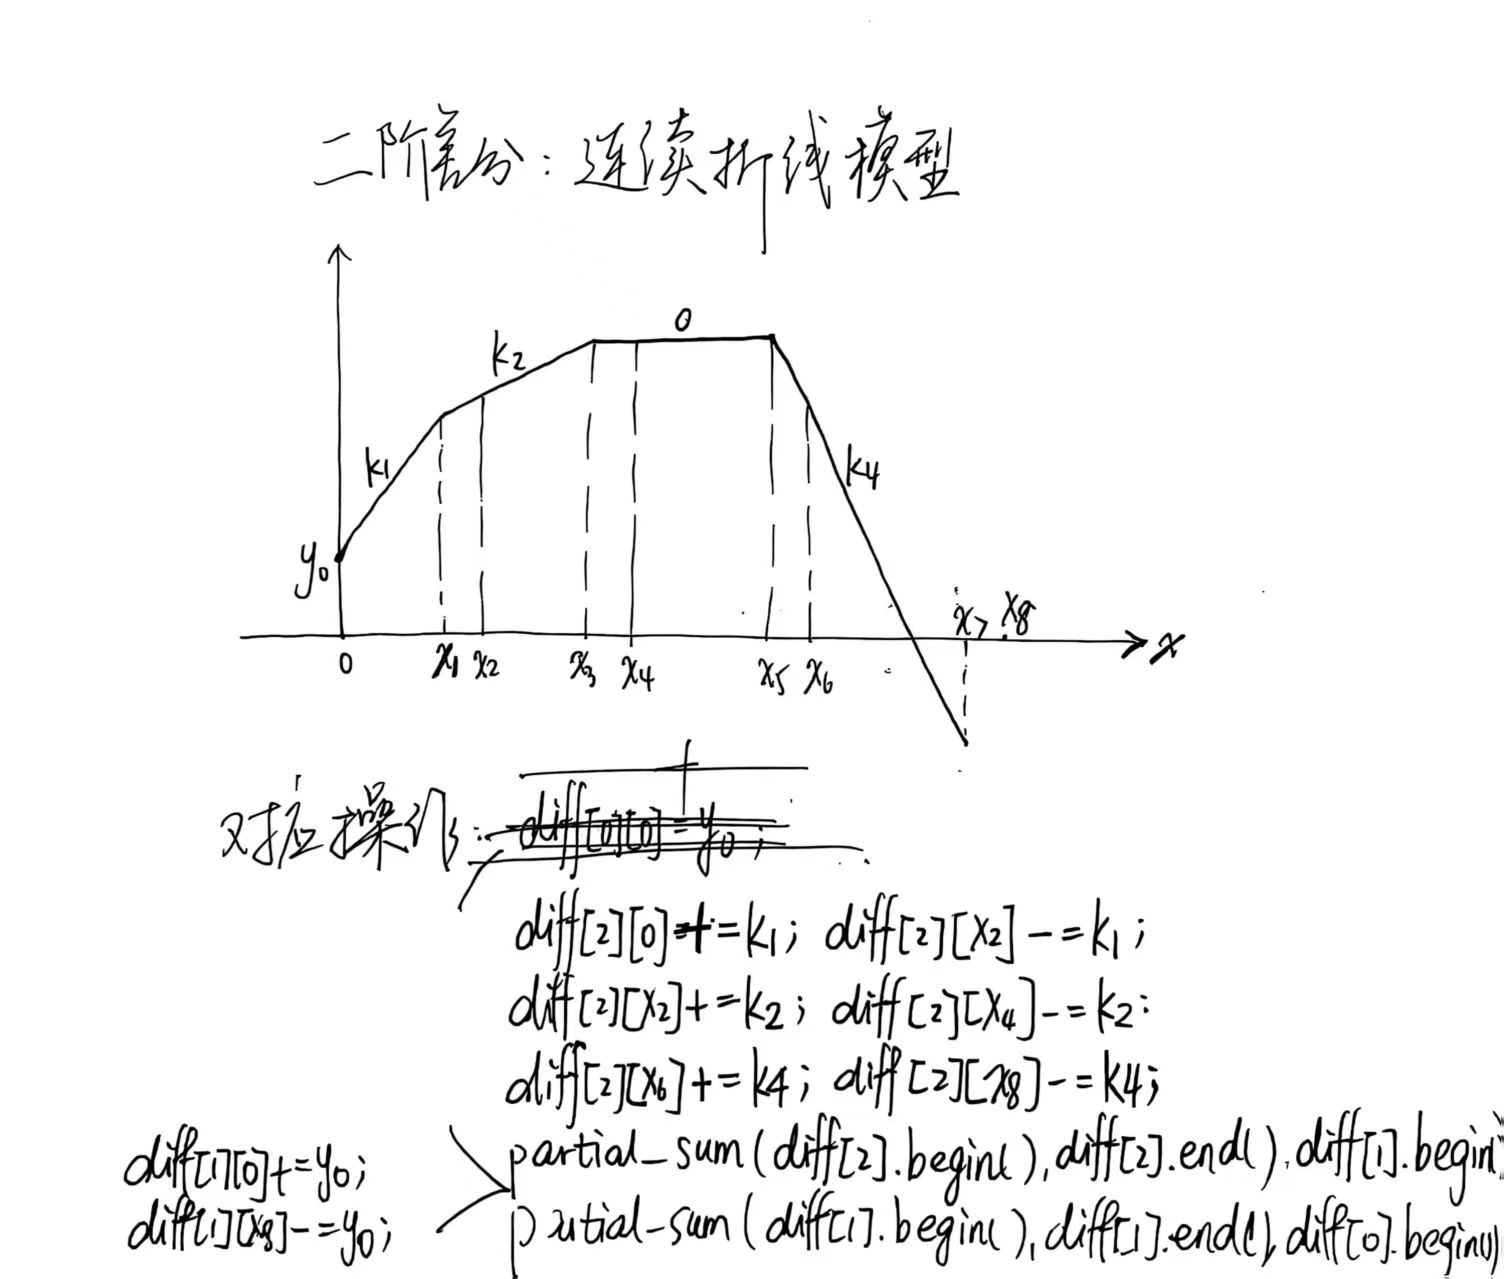 二阶差分：连续折线模型
0
k2
k1
k4
y0
x7 x8
x
0 x1 x2 x3 x4 x5 x6
对应操作：diff[0][0]=y0;
diff[2][0]+=k1; diff[2][x2]-=k1;
diff[2][x2]+=k2; diff[2][x4]-=k2:
diff[2][x6]+=k4; diff[2][x8]-=k4;
diff[1][0]+=y0;
diff[1][x8]-=y0;
partial_sum(diff[2].begin(),diff[2].end(),diff[1].begin
partial_sum(diff[1].begin(),diff[1].end(),diff[0].begin()